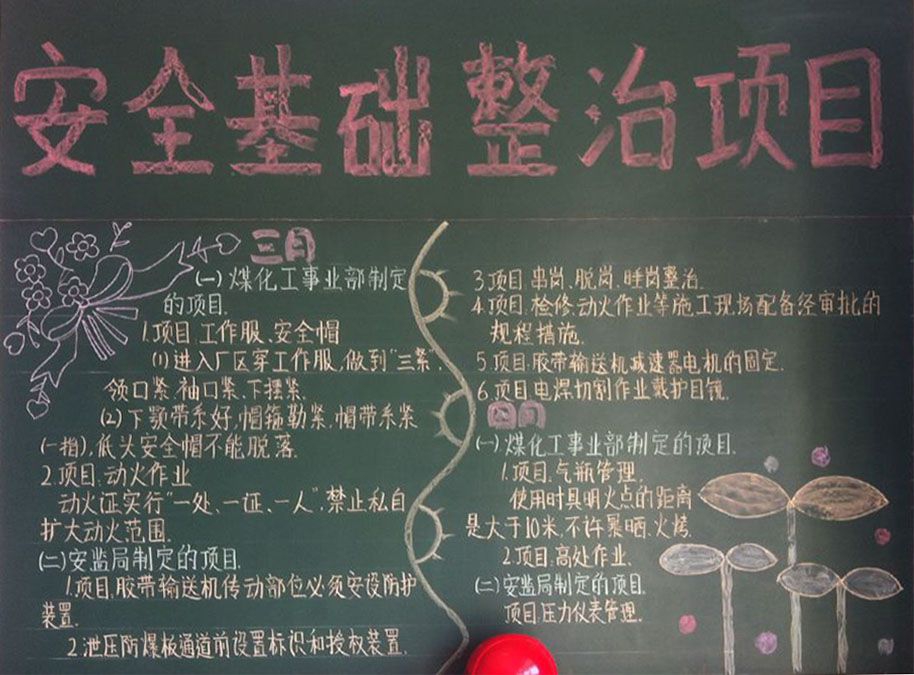 安全基础整治项目
三月
(一)煤化工事业部制定
的项目.
1.项目.工作服、安全帽
(1)进入厂区穿工作服,做到“三紧”.
领口紧.袖口紧.下摆紧.
(2)下颚带系好,帽箍勒紧.帽带系紧
(一指),低头安全帽不能脱落.
2.项目.动火作业
动火证实行“一处、一证、一人”.禁止私自
扩大动火范围.
(二)安监局制定的项目.
1.项目.胶带输送机传动部位必须安设防护
装置.
2.泄压防爆板通道前设置标识和授权装置.
3.项目.串岗、脱岗、睡岗整治.
4.项目.检修.动火作业等施工现场配备经审批的
规程措施.
5.项目.胶带输送机减速器电机的固定.
6.项目.电焊切割作业戴护目镜.
四月
(一)煤化工事业部制定的项目.
1.项目.气瓶管理.
使用时具明火点的距离
是大于10米.不许暴晒.火烤.
2.项目.高处作业.
(二)安监局制定的项目.
项目.压力仪表管理.